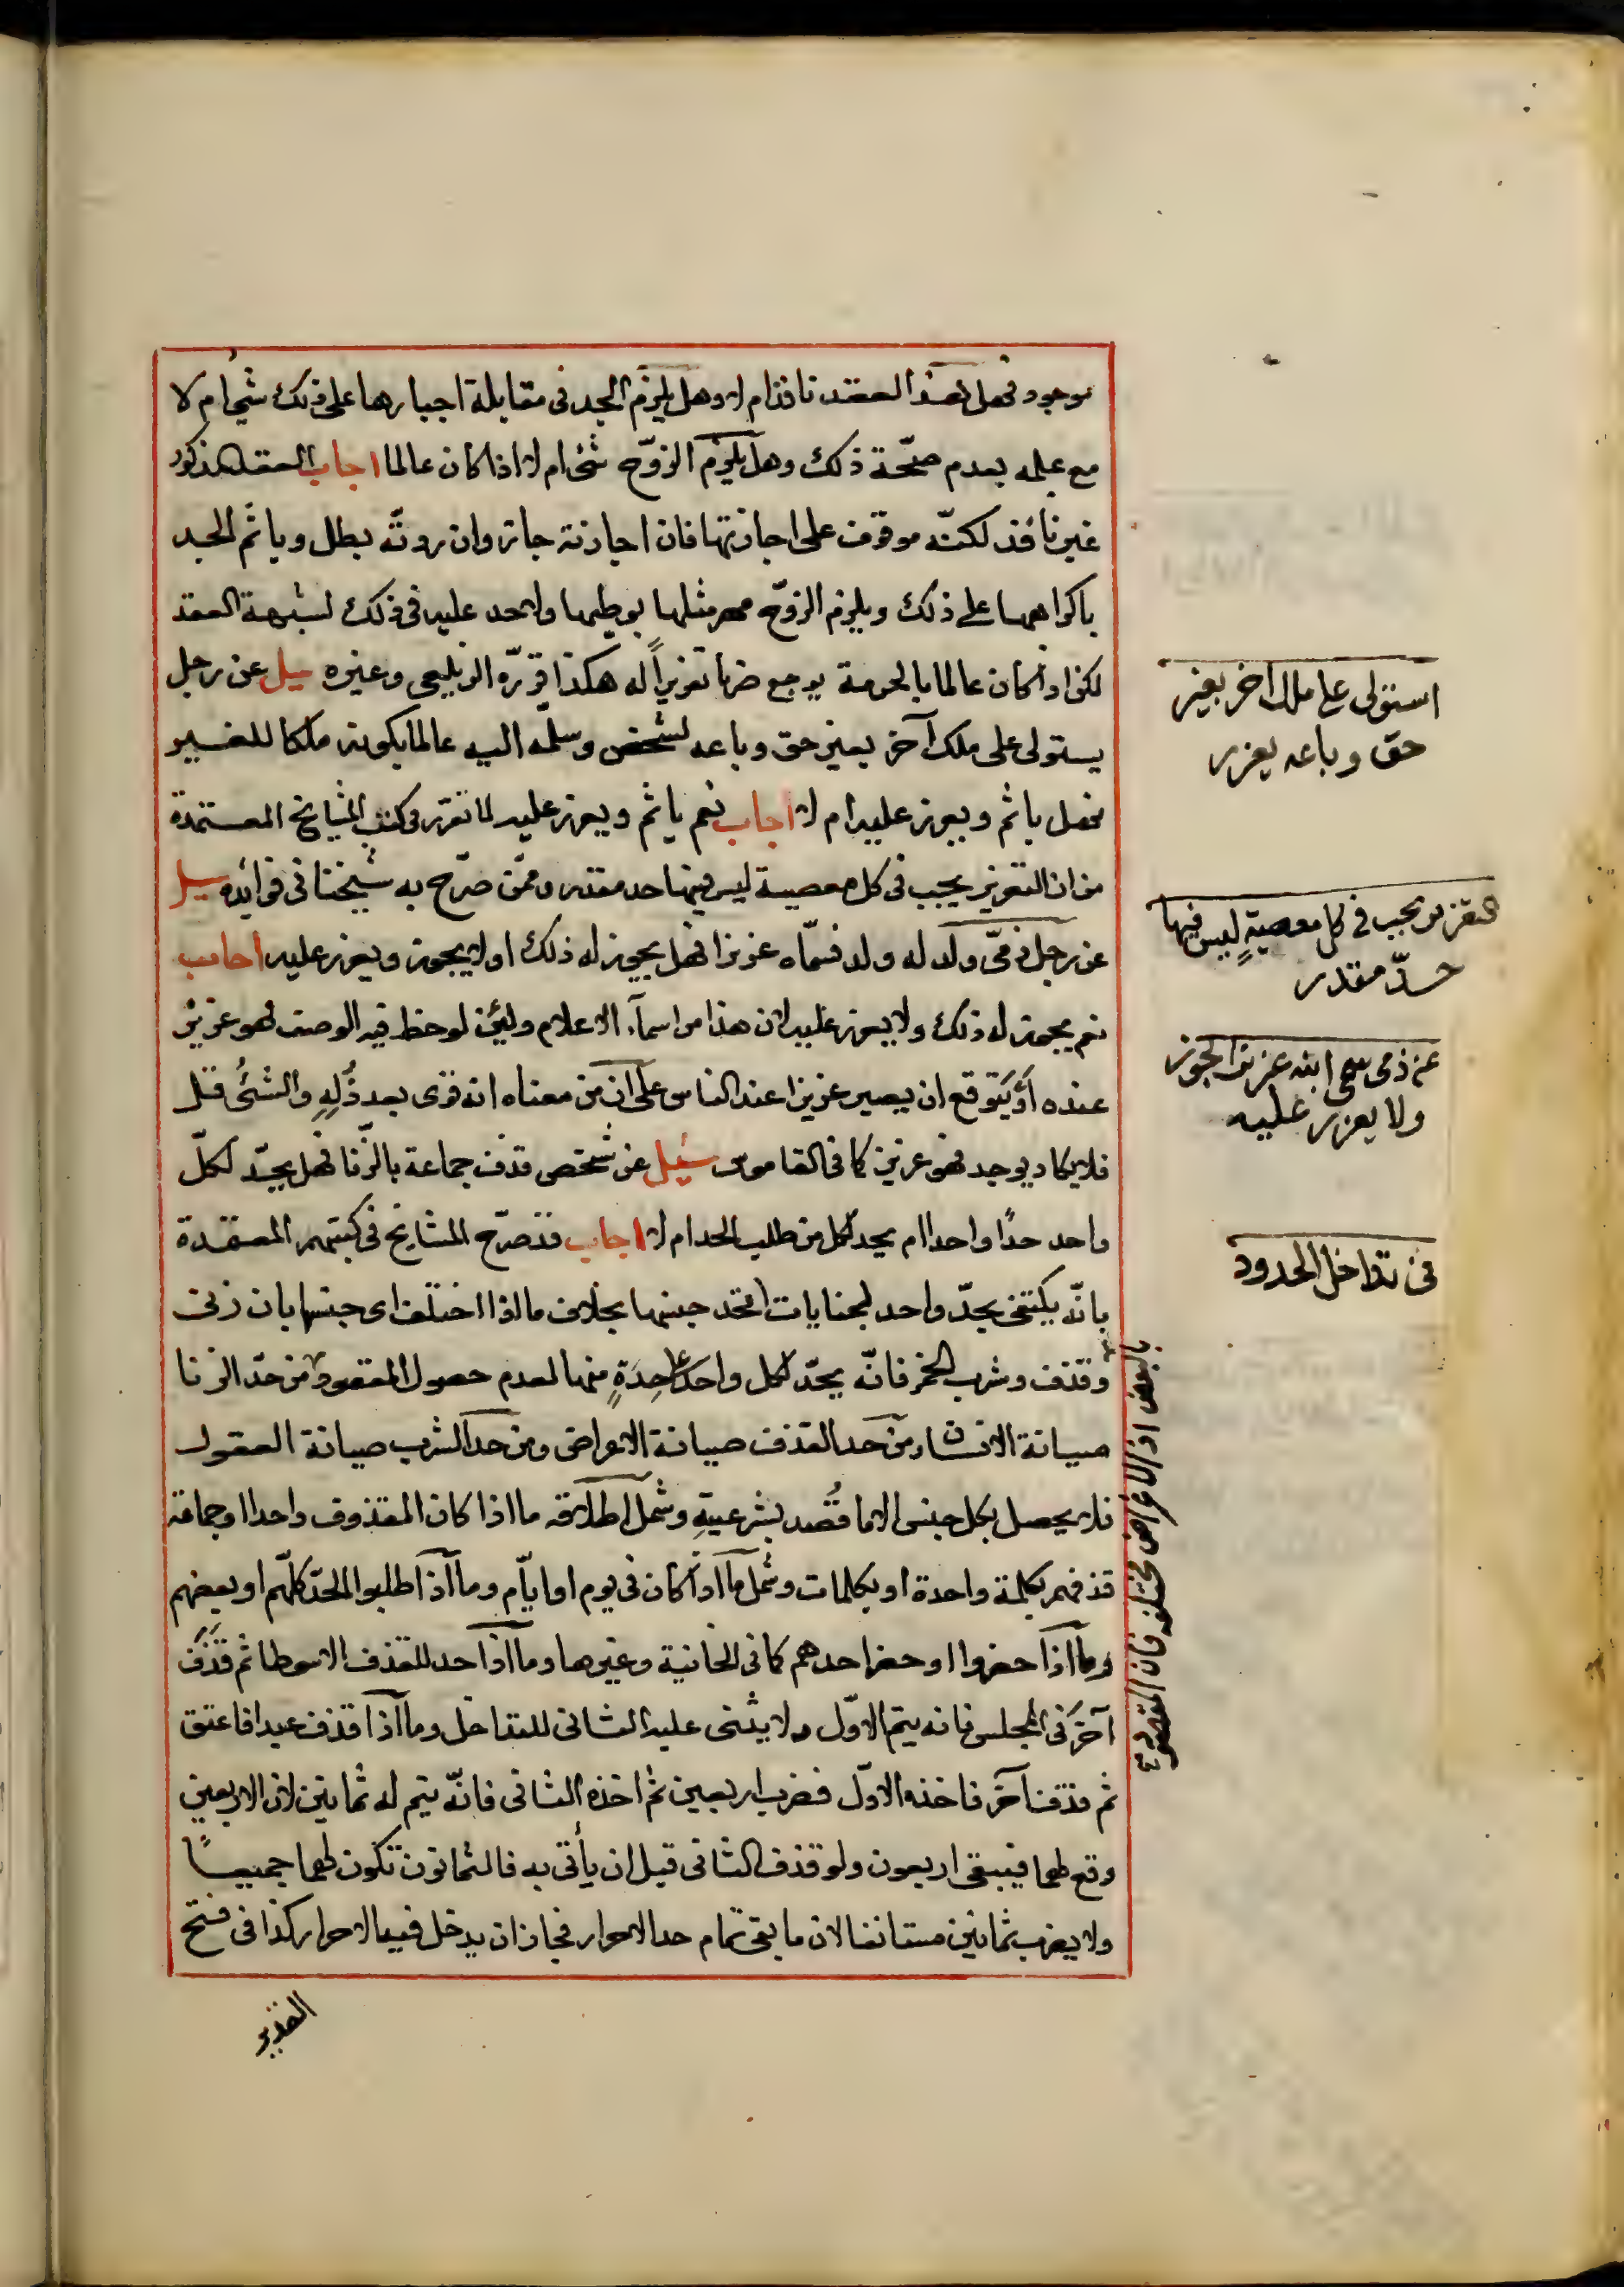 موجود فهل هذا العقد نافذ ام لا وهل يلزم الجد فى مقابلة اجبارها على ذلك شئ ام لا
مع علمه بعدم صحّة ذلك وهل يلزم الزوج شئ ام لا اذا كان عالما اجاب العقد المذكور
غير نافذ لكنّه موقوف على اجازتها فان اجازته جاز وان ردتّه بطل وياثم الجد
باكراهها على ذلك ويلزم الزوج مهر مثلها بوطيها ولا حد عليه فى ذلك لشبهة العقد
لكن اذا كان عالما بالحرمة يوجع ضربا تعزيراً له هكذا قرّره الزيلعى وغيره سيل عن رجل
يستولى على ملك آخر بغير حق وباعه لشخص وسلمه اليه عالما بكونه ملكا للغير
فهل ياثم ويعزر عليه ام لا اجاب نعم ياثم ويعزر عليه لما تقرر فى كتب المشايخ المعتمدة
من ان التعزير يجب فى كل معصية ليس فيها حد مقدر وممّن صرّح به شيخنا فى فوائده سيل
عن رجل ذمىّ ولد له ولد فسمّاه عزيزا فهل يجوز له ذلك او لا يجوز ويعزر عليه اجاب
نعم يجوز له ذلك ولا يعزر عليه لان هذا من اسمآء الاعلام ولئن لوحظ فيه الوصف فهو عزيز
عنده أو يَتوقع ان يصير عزيزا عند الناس على ان من معناه انه قوى بعد ذُلِّهِ والشئُ قل
فلا يكاد يوجد فهو عزيز كما فى القاموس سئيل عن شخص قذف جماعة بالزنا فهل يحدّ لكلّ
واحد حدًا واحدا ام يحد لكل من طلب الحد ام لا اجاب قد صرّح المشايخ فى كتبهم المعتمدة
بانّه يكتفى بحدّ واحد لجنايات اتحد جنسها بخلاف ما اذا اختلف اى جنسها بان زنى
وقذف وشرب الخمر فانّه يحدّ لكل واحد على حِدَةٍ منها لعدم حصول المقصود من حدّ الزنا
صيانة الانساب ومن حد القذف صيانة الاعراض ومن حد الشرب صيانة العقول
فلا يحصل بكل جنس الا ما قُصد بشرعيتهِ وشمل اطلاقه ما اذا كان المقذوف واحدا او جماعة
قذفهم بكلمة واحدة او بكلمات وشمل ما اذا كان فى يوم او ايّام وما اذا طلبوا الحدّ كلّهم او بعضهم
وما اذا حضروا او حضر احدهم كما فى الخانية وغيرها وما اذا حد للقذف الا سوطا ثم قَذَفَ
آخرَ فى المجلس فانه يتم الاوّل ولا يثنى عليه الثانى للتداخل وما اذا قذف عبدا فاعتق
ثم قذف آخر فاخذه الاوّل فضرب اربعين ثم اخذه الثانى فانّه يتم له ثمانين لان الاربعين
وقع لهما فيبقى اربعون ولو قذف الثانى قبل ان يأتى به فالثمانون تكون لهما جميعاً
ولا يضرب ثمانين مستانفا لان ما بقى تمام حد الاحرار فجاز ان يدخل فيه الاحرار كذا فى فتح
القدير
استولى على ملك اخر بغير
حق وباعه يعزر
التعزير يجب فى كل معصيةٍ ليس فيها
حدّ مقدر
عن ذمى سمى ابنه عزيزا يجوز
ولا يعزر عليه
فى تداخل الحدود
بالبعض اذ الاغراض مختلفه فان المقصود صح